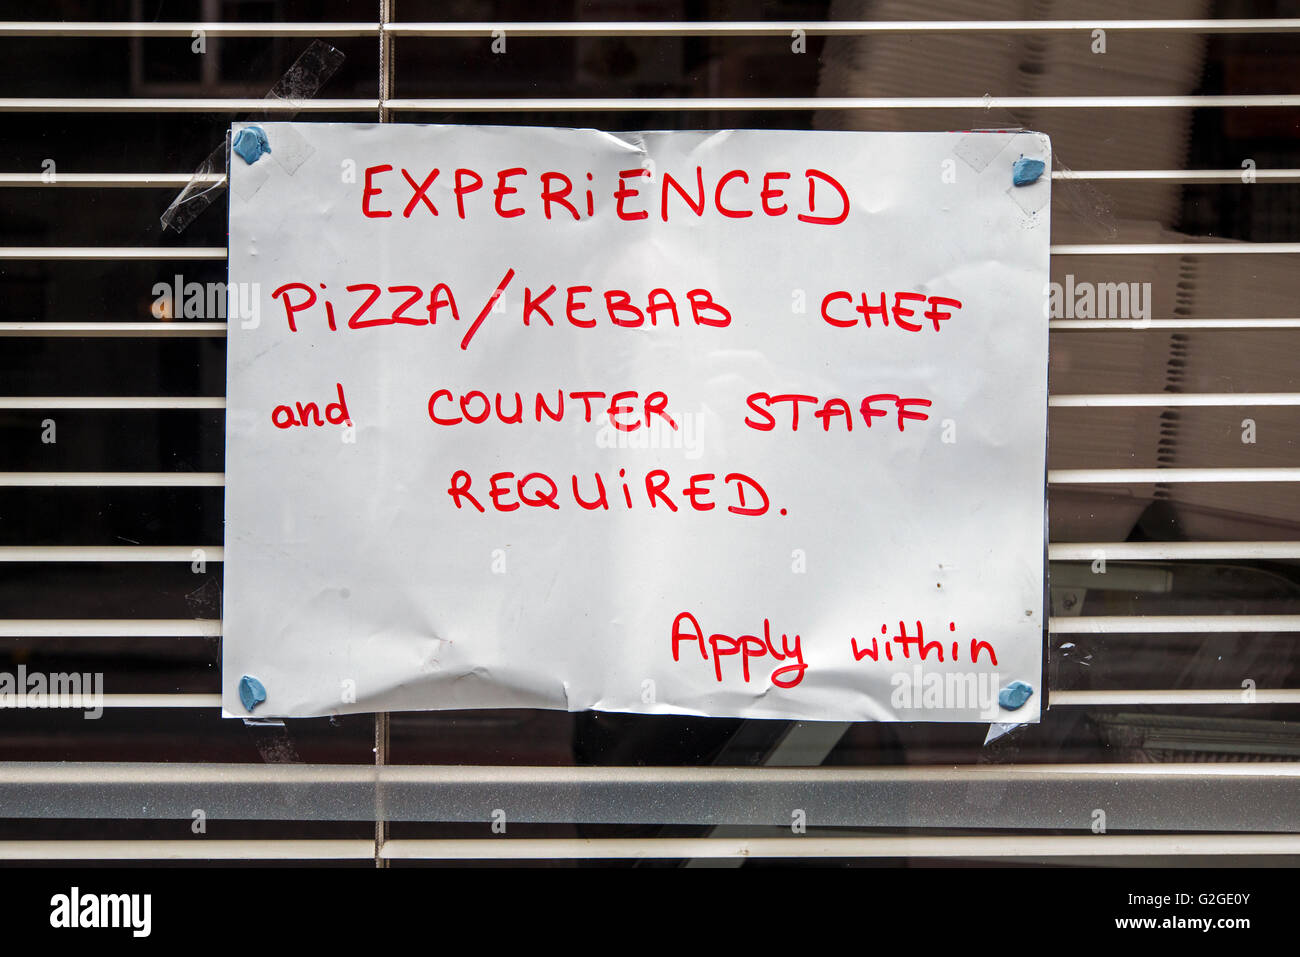 EXPERiENCED
PiZZA/KEBAB CHEF
and COUNTER STAFF
REQUiRED.
Apply within
alamy stock photo
G2GE0Y
www.alamy.com